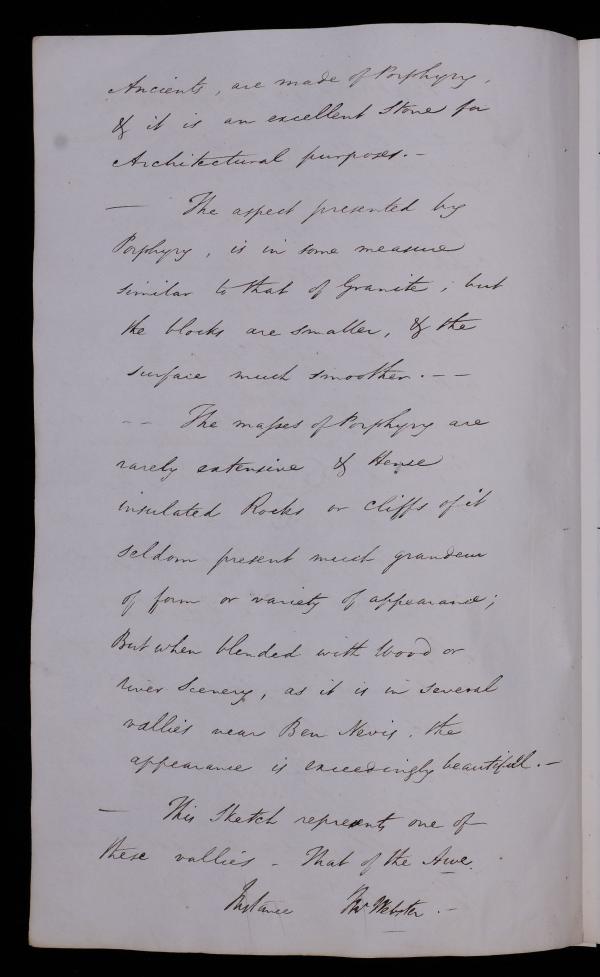 Ancients, are made of Porphyry,
& it is an excellent Stone for
Architectural purposes. –
— The aspect presented by
Porphyry, is in some measure
similar to that of Granite; but
the blocks are smaller, & the
surface much smoother. – –
– – The masses of Porphyry are
rarely extensive & Hense
insulated Rocks or Cliffs of it
seldom present much grandeur
of form or variety of appearance;
But when blended with Wood or
river Scenery, as it is in several
vallies near Ben Nevis, the
appearance is exceedingly beautiful. –
— This Sketch represents one of
these vallies – That of the Awe.
Instance Thos Webster. –